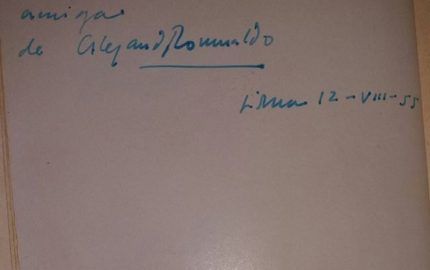 amigo
de Alejandro Romualdo
Lima 12-VIII-55